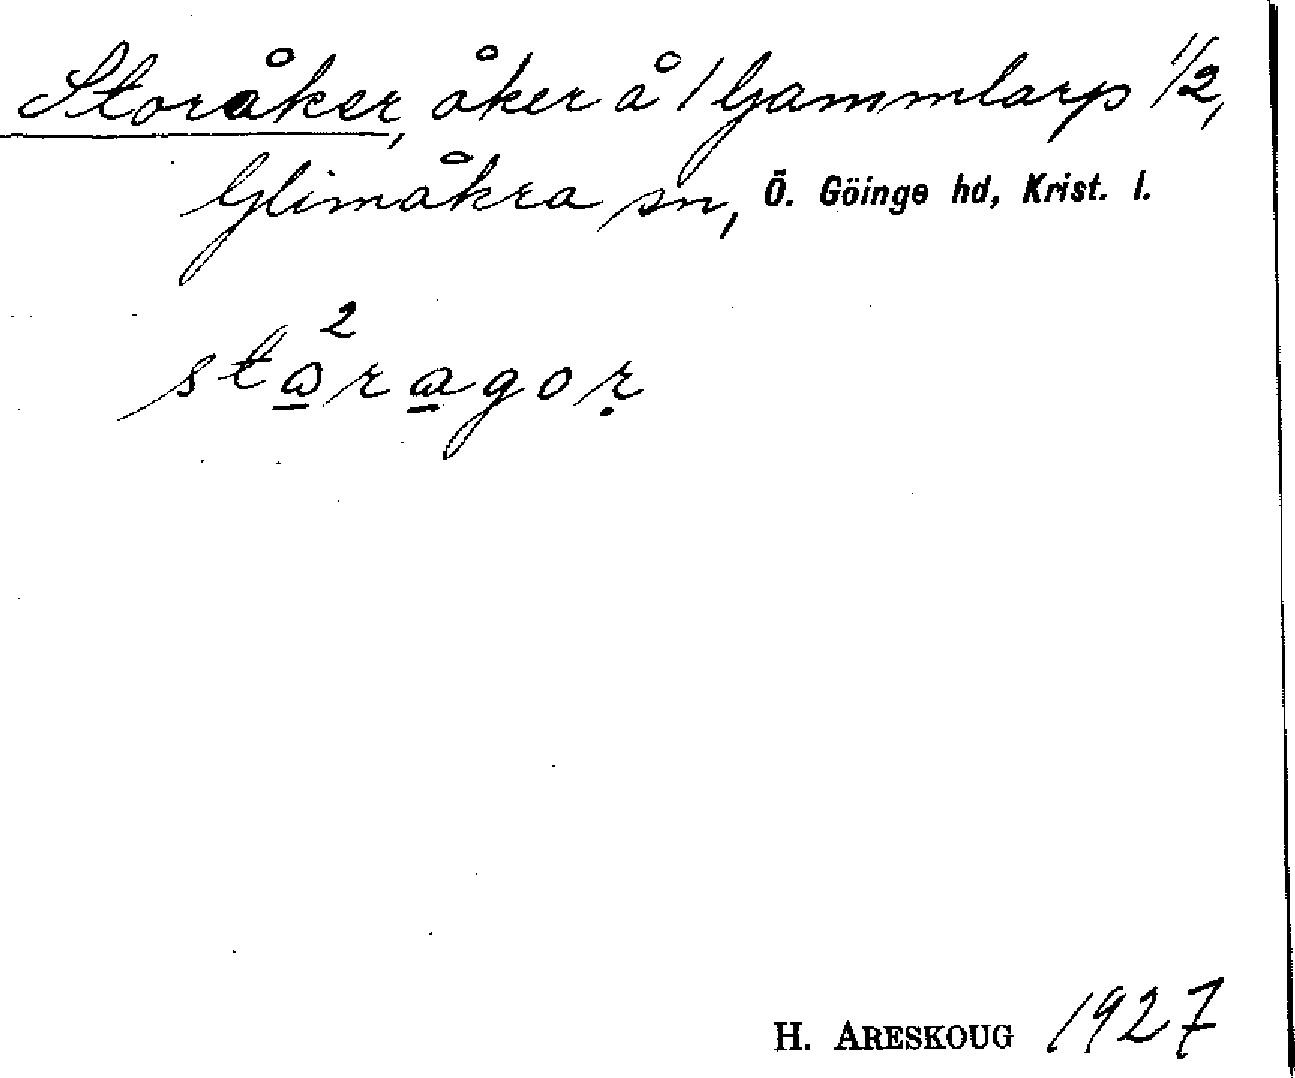 Storåker, åker å 1 Gammlarp 1/2,
Glimåkra sn, Ö. Göinge hd, Krist. l.
stα̱²rα̱goṛ
H. ARESKOUG 1927